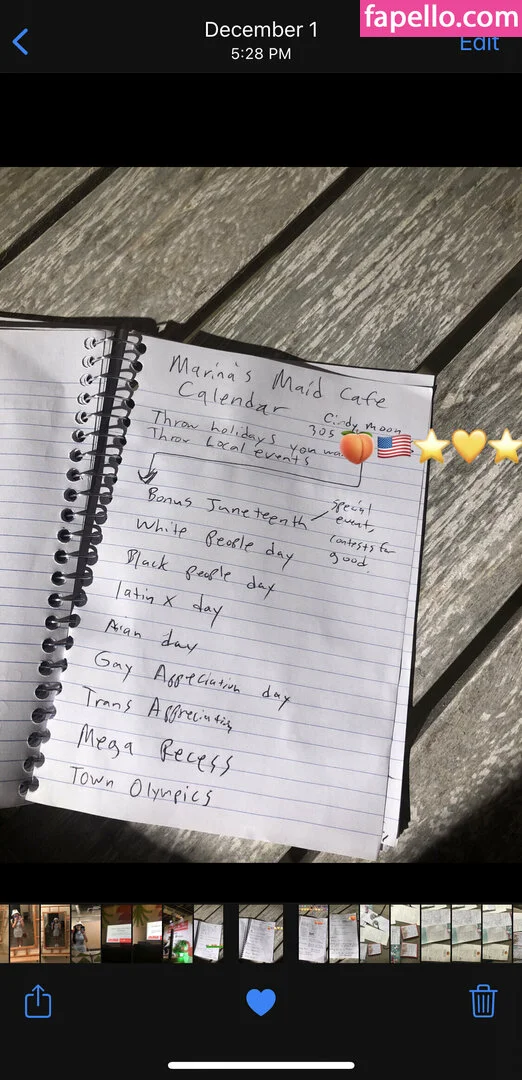 fapello.com
December 1
5:28 PM
Edit
Marina's Maid Cafe
Calendar
Cindy Moon
305
Throw holidays you wa
Throw Local events
Bonus Juneteenth
special
event,
contests for
good
White People day
Black people day
latin x day
Asian day
Gay Appreciation day
Trans Appreciation
Mega Recess
Town Olympics